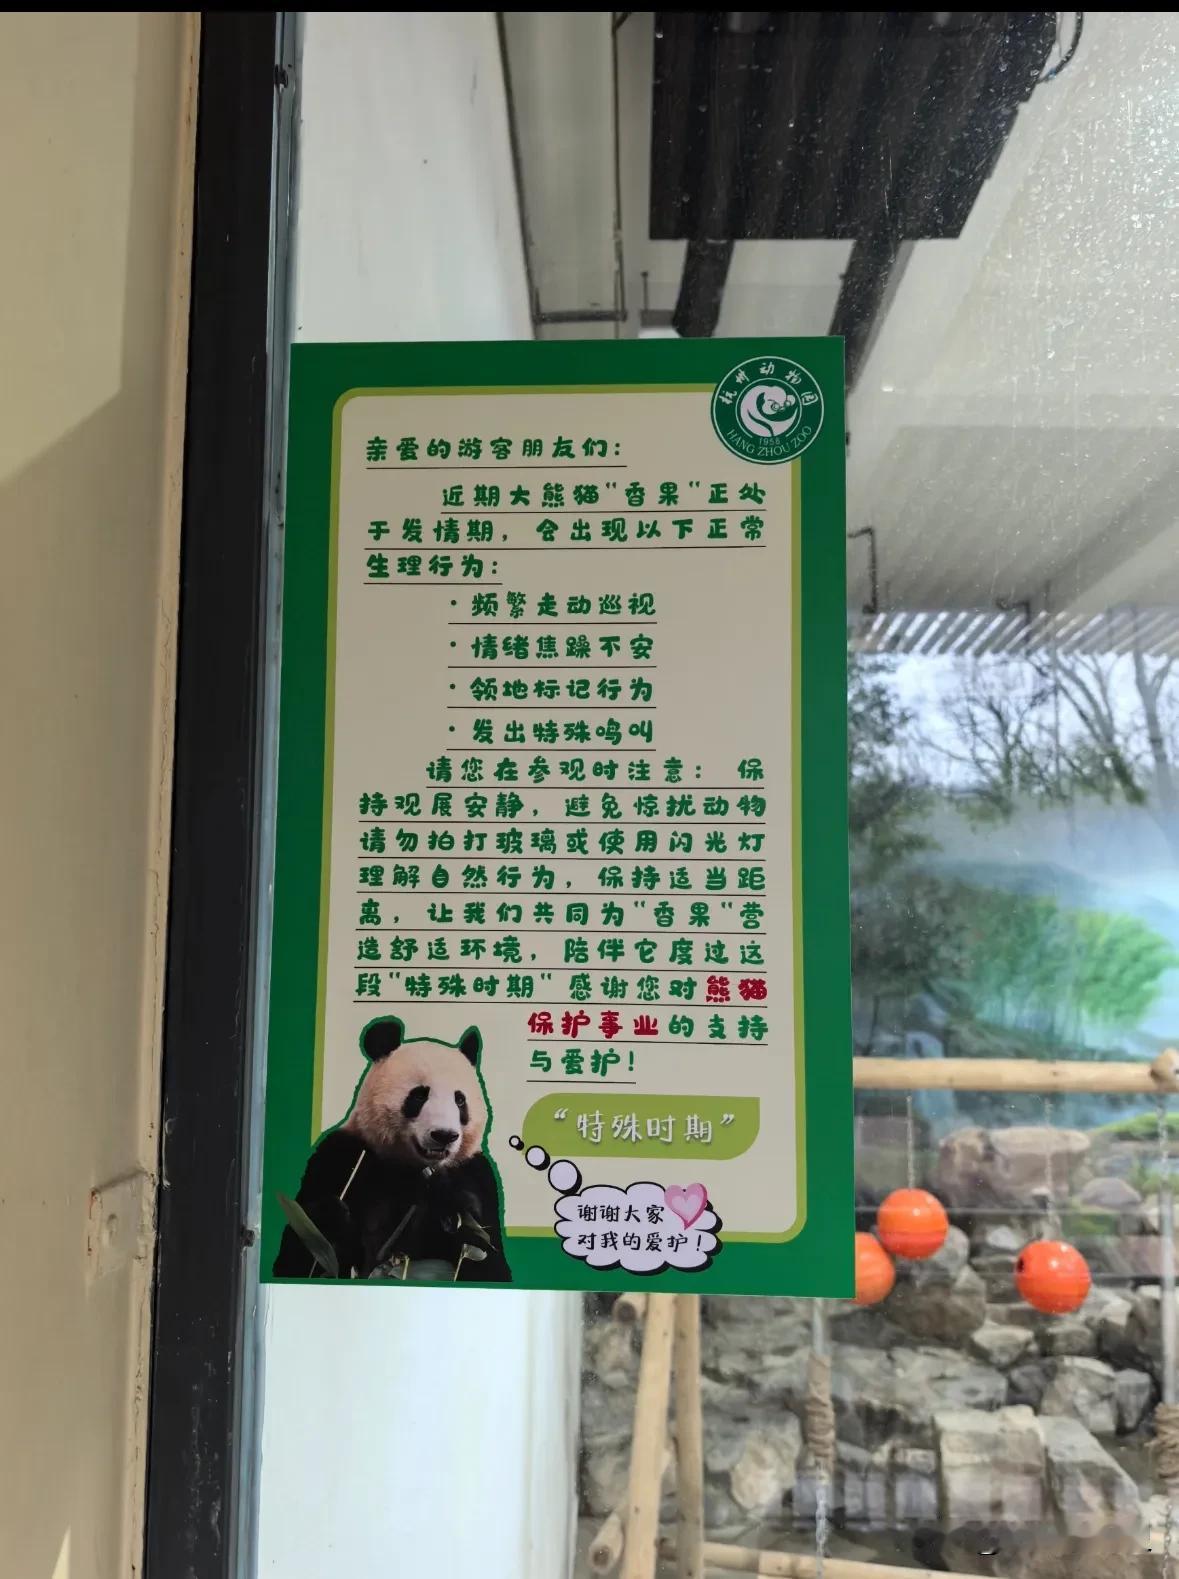 杭州动物园
1958
HANG ZHOU ZOO
亲爱的游客朋友们：
近期大熊猫“香果“正处
于发情期，会出现以下正常
生理行为：
·频繁走动巡视
·情绪焦躁不安
·领地标记行为
·发出特殊鸣叫
请您在参观时注意：保
持观展安静，避免惊扰动物
请勿拍打玻璃或使用闪光灯
理解自然行为，保持适当距
离，让我们共同为“香果“营
造舒适环境，陪伴它度过这
段“特殊时期“感谢您对熊猫
保护事业的支持
与爱护！
“特殊时期”
谢谢大家
对我的爱护！